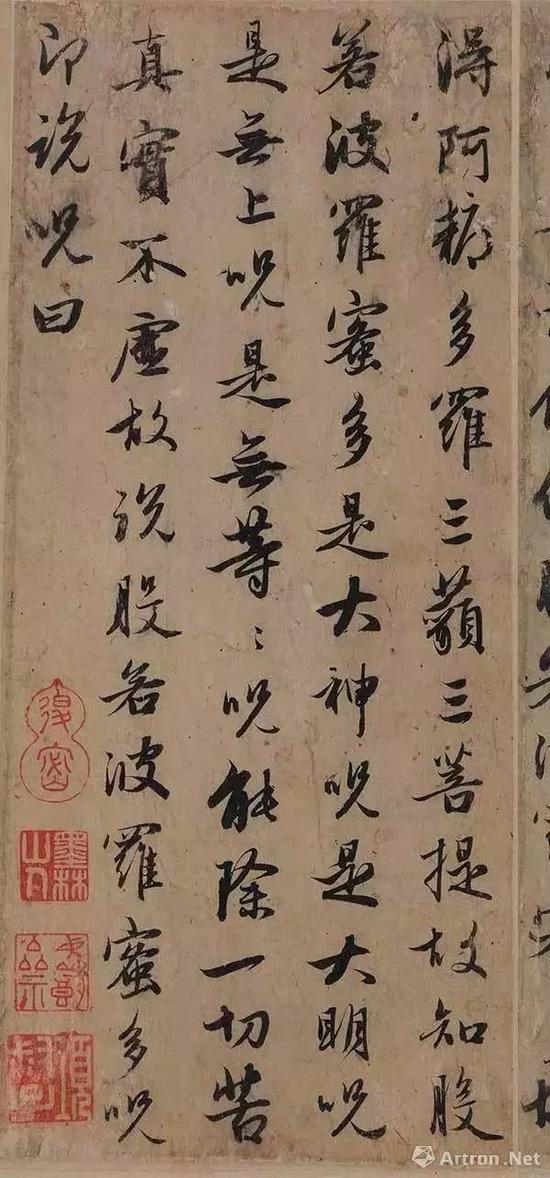 得阿耨多羅三藐三菩提故知般
若波羅蜜多是大神呪是大明呪
是無上呪是無等〻呪能除一切苦
真實不虛故說般若波羅蜜多呪
即說呪曰
墨林山人
Artron.Net